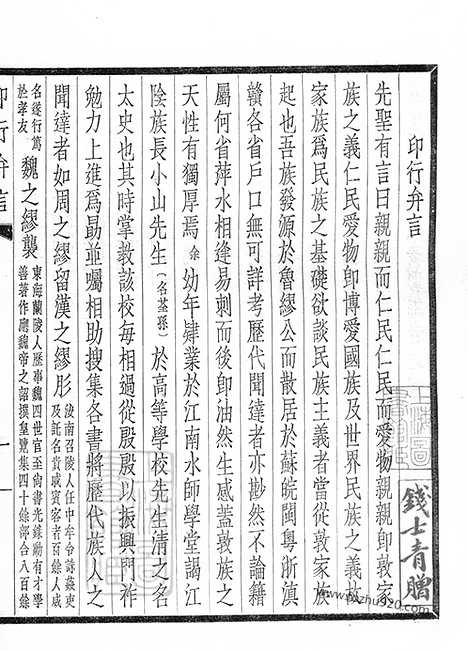 印行弁言
先聖有言曰親親而仁民仁民而愛物親親即敦家
族之義仁民愛物即博愛國族及世界民族之義故
家族為民族之基礎欲談民族主義者當從敦家族
起也吾族發源於魯繆公而散居於蘇皖閩粵浙滇
贛各省戶口無可詳考歷代聞達者亦尠然不論籍
屬何省萍水相逢易刺而後即油然生感蓋敦族之
天性有獨厚焉余幼年肄業於江南水師學堂謁江
陰族長小山先生（名荃孫）於高等學校先生清之名
太史也其時掌教該校每相過從殷殷以振興門祚
勉力上進為勗並囑相助搜集各書將歷代族人之
聞達者如周之繆留漢之繆肜
汝南召陵人任中牟令誅姦吏
及託名貴戚賓客者百餘人威
名遂行篤
於孝友
魏之繆襲
東海蘭陵人歷事魏四世官至尚書光錄勳有才學
善著作嘗魏帝之詔撰皇覽集四十餘部合八百餘
印行弁言
一
錢士青贈